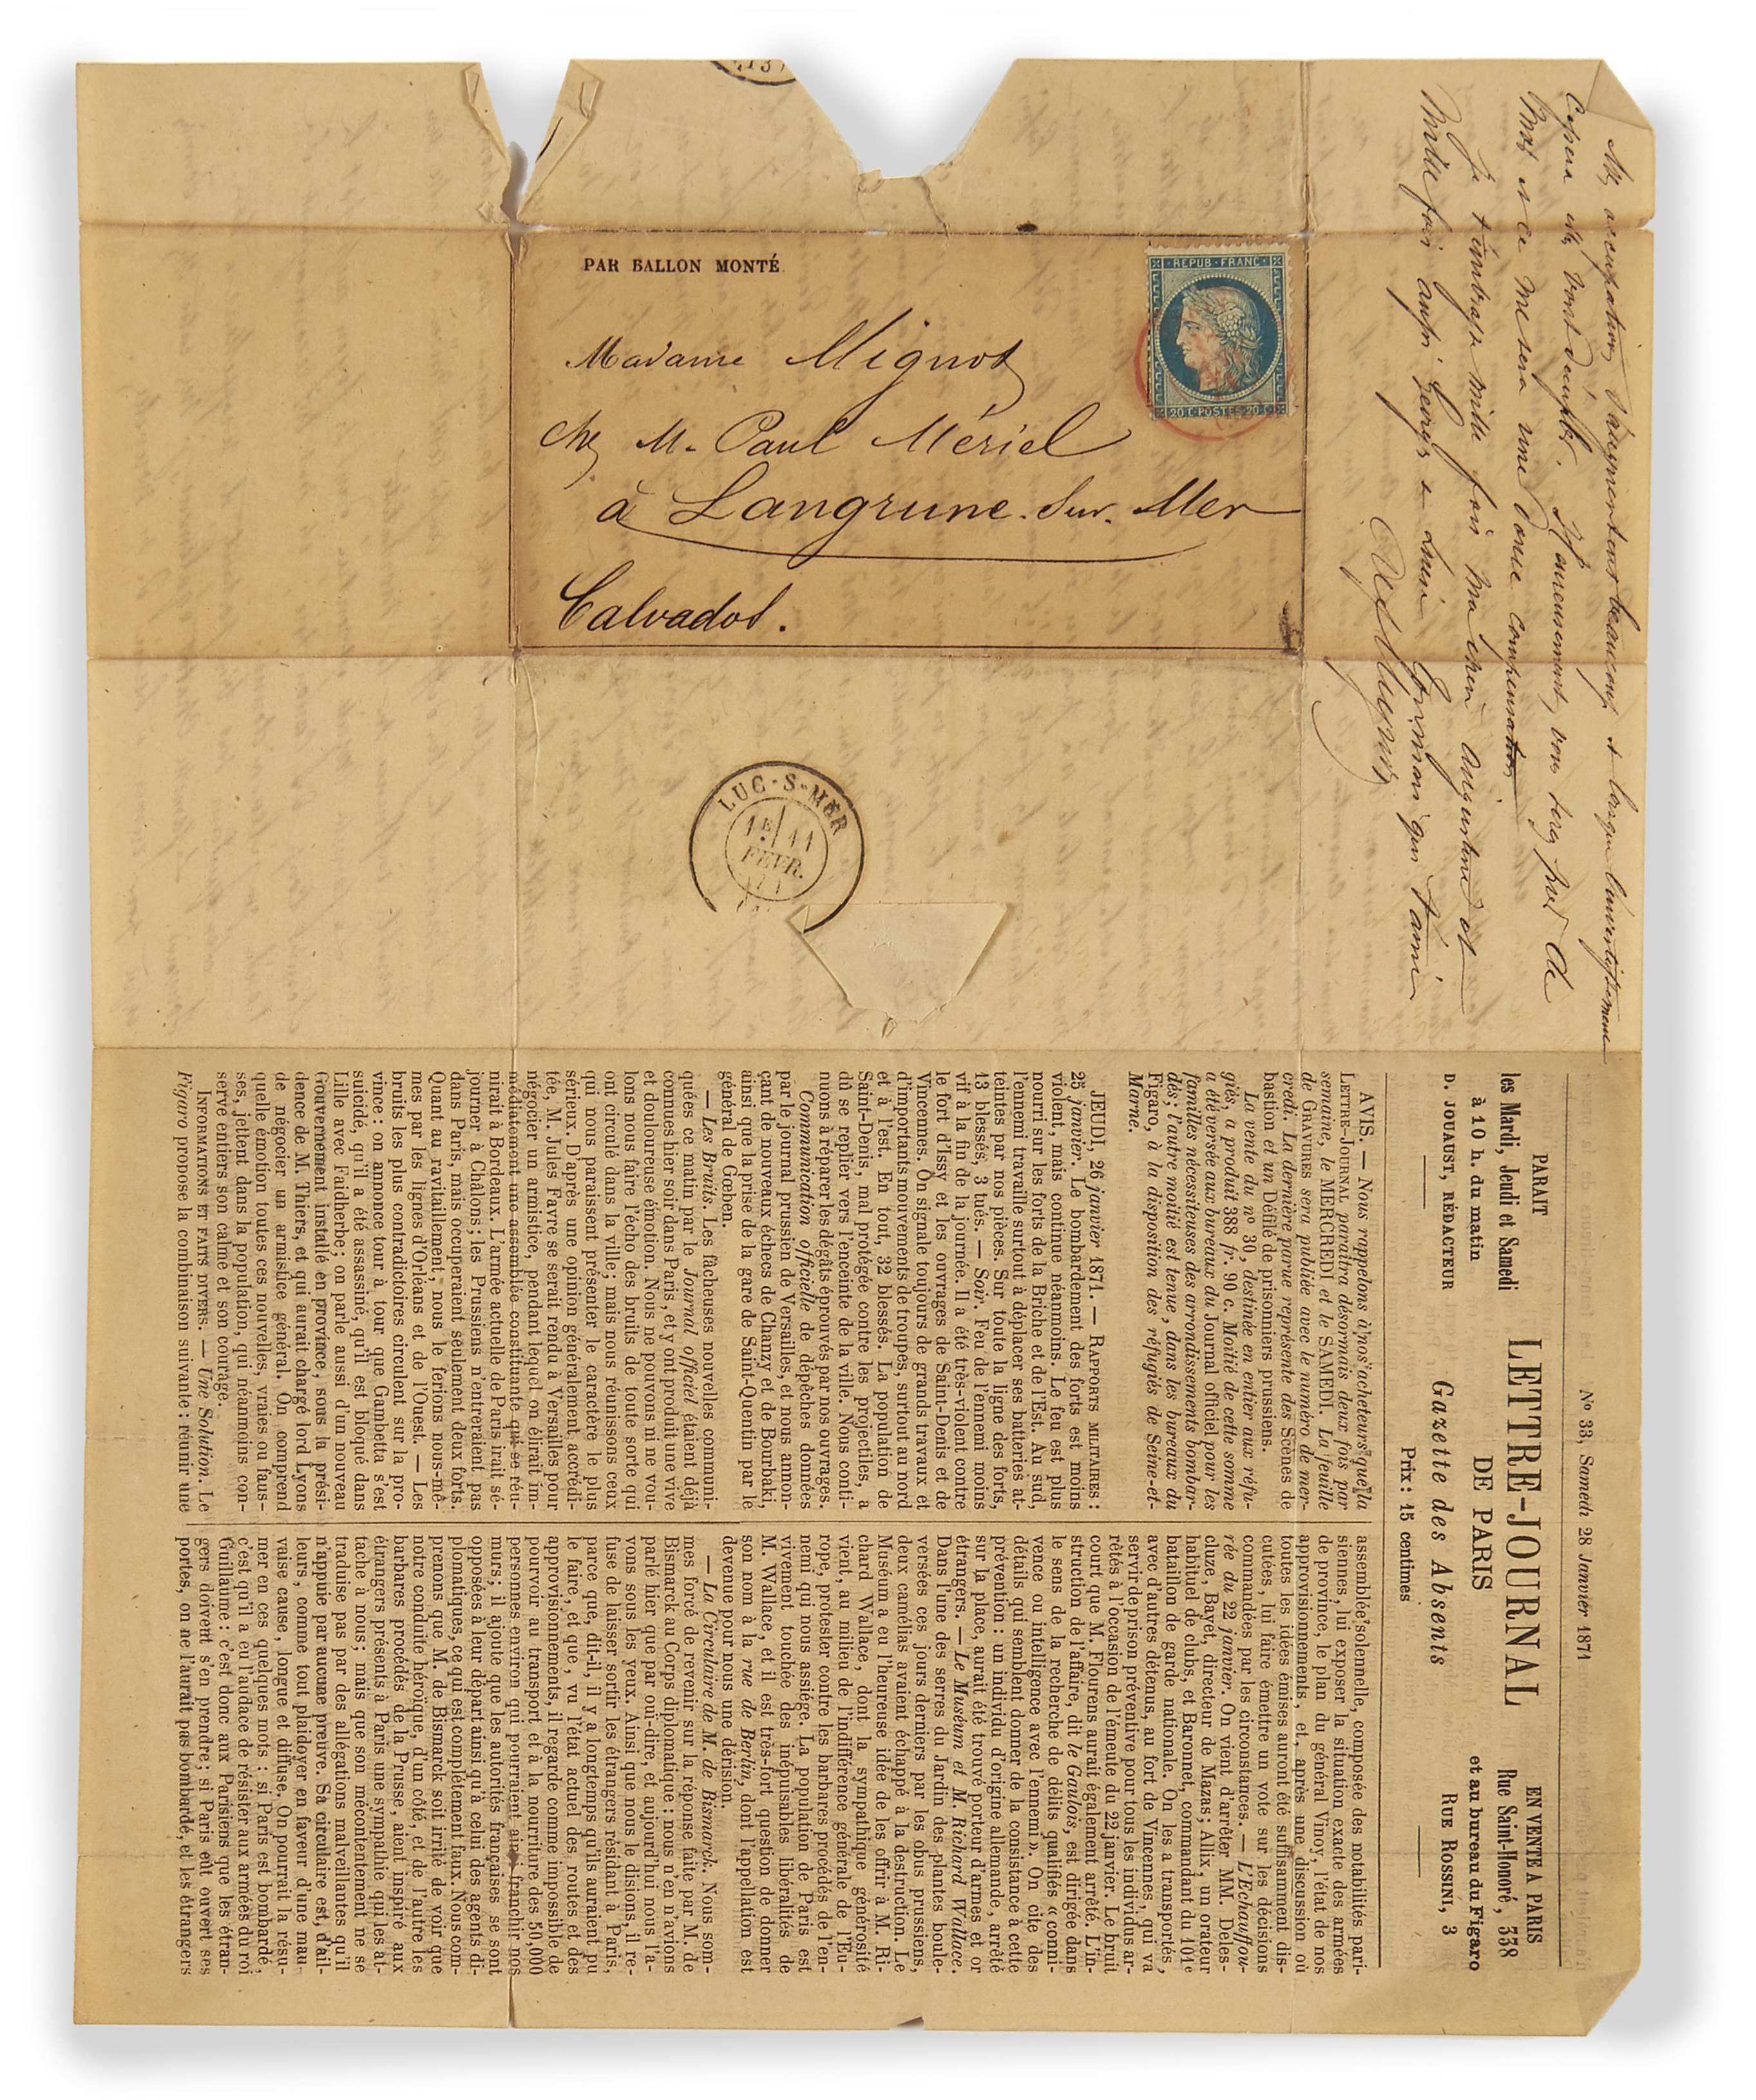 PAR BALLON MONTÉ
REPUB · FRANC ·
20 C · POSTES · 20 C
Madame Mignot
chez M. Paul Mériel
à Langrune-sur-Mer
Calvados.
LUC-S-MER
1E 11
FEVR.
71
beaucoup et lorsque
vous serez près de
Moi et ce me sera une douce compensation
Je t'embrasse mille fois ma chère Augustine et
Mille fois aussi
N° 33, Samedi 28 Janvier 1871
PARAIT
les Mardi, Jeudi et Samedi
à 10 h. du matin
D. JOUAUST, RÉDACTEUR
LETTRE-JOURNAL
DE PARIS
Gazette des Absents
Prix : 15 centimes
EN VENTE A PARIS
Rue Saint-Honoré, 338
et au bureau du Figaro
RUE ROSSINI, 3
AVIS. — Nous rappelons à nos acheteurs que la
LETTRE-JOURNAL paraîtra désormais deux fois par
semaine, le MERCREDI et le SAMEDI. La feuille
de GRAVURES sera publiée avec le numéro de mer-
credi. La dernière parue représente des Scènes de
bastion et un Défilé de prisonniers prussiens.
La vente du n° 30, destinée en entier aux réfu-
giés, a produit 388 fr. 90 c. Moitié de cette somme
a été versée aux bureaux du Journal officiel pour les
familles nécessiteuses des arrondissements bombar-
dés; l'autre moitié est tenue, dans les bureaux du
Figaro, à la disposition des réfugiés de Seine-et-
Marne.
JEUDI, 26 janvier 1871. — RAPPORTS MILITAIRES :
25 janvier. Le bombardement des forts est moins
violent, mais continue néanmoins. Le feu est plus
nourri sur les forts de la Briche et de l'Est. Au sud,
l'ennemi travaille surtout à déplacer ses batteries at-
teintes par nos pièces. Sur toute la ligne des forts,
13 blessés, 3 tués. — Soir. Feu de l'ennemi moins
vif à la fin de la journée. Il a été très-violent contre
le fort d'Issy et les ouvrages de Saint-Denis et de
Vincennes. On signale toujours de grands travaux et
d'importants mouvements de troupes, surtout au nord
et à l'est. En tout, 32 blessés. La population de
Saint-Denis, mal protégée contre les projectiles, a
dû se replier vers l'enceinte de la ville. Nous conti-
nuons à réparer les dégâts éprouvés par nos ouvrages.
Communication officielle de dépêches données
par le journal prussien de Versailles, et nous annon-
çant de nouveaux échecs de Chanzy et de Bourbaki,
ainsi que la prise de la gare de Saint-Quentin par le
général de Gœben.
— Les Bruits. Les fâcheuses nouvelles communi-
quées ce matin par le Journal officiel étaient déjà
connues hier soir dans Paris, et y ont produit une vive
et douloureuse émotion. Nous ne pouvons ni ne vou-
lons nous faire l'écho des bruits de toute sorte qui
ont circulé dans la ville; mais nous réunissons ceux
qui nous paraissent présenter le caractère le plus
sérieux. D'après une opinion généralement accrédi-
tée, M. Jules Favre se serait rendu à Versailles pour
négocier un armistice, pendant lequel on élirait im-
médiatement une assemblée constituante qui se réu-
nirait à Bordeaux. L'armée actuelle de Paris irait sé-
journer à Châlons; les Prussiens n'entreraient pas
dans Paris, mais occuperaient seulement deux forts.
Quant au ravitaillement, nous le ferions nous-mê-
mes par les lignes d'Orléans et de l'Ouest. — Les
bruits les plus contradictoires circulent sur la pro-
vince : on annonce tour à tour que Gambetta s'est
suicidé, qu'il a été assassiné, qu'il est bloqué dans
Lille avec Faidherbe; on parle aussi d'un nouveau
Gouvernement installé en province, sous la prési-
dence de M. Thiers, et qui aurait chargé lord Lyons
de négocier un armistice général. On comprend
quelle émotion toutes ces nouvelles, vraies ou faus-
ses, jettent dans la population, qui néanmoins con-
serve entiers son calme et son courage.
INFORMATIONS ET FAITS DIVERS. — Une Solution. Le
Figaro propose la combinaison suivante : réunir une
assemblée solennelle, composée des notabilités pari-
siennes, lui exposer la situation exacte des armées
de province, le plan du général Vinoy, l'état de nos
approvisionnements, et, après une discussion où
toutes les idées émises auront été suffisamment dis-
cutées, lui faire émettre un vote sur les décisions
commandées par les circonstances. — L'Echauffou-
rée du 22 janvier. On vient d'arrêter MM. Deles-
cluze, Bayet, directeur de Mazas; Allix, un orateur
habituel de clubs, et Baronnet, commandant du 101e
bataillon de garde nationale. On les a transportés,
avec d'autres détenus, au fort de Vincennes, qui va
servir de prison préventive pour tous les individus ar-
rêtés à l'occasion de l'émeute du 22 janvier. Le bruit
court que M. Flourens aurait également arrêté. L'in-
struction de l'affaire, dit le Gaulois, est dirigée dans
le sens de la recherche de délits qualifiés « conni-
vence ou intelligence avec l'ennemi ». On cite des
détails qui semblent donner de la consistance à cette
prévention : un individu d'origine allemande, arrêté
sur la place, aurait été trouvé porteur d'armes et or
étrangers. — Le Muséum et M. Richard Wallace.
Dans l'une des serres du Jardin des plantes boule-
versées ces jours derniers par les obus prussiens,
deux camélias avaient échappé à la destruction. Le
Muséum a eu l'heureuse idée de les offrir à M. Ri-
chard Wallace, dont la sympathique générosité
vient, au milieu de l'indifférence générale de l'Eu-
rope, protester contre les barbares procédés de l'en-
nemi qui nous assiége. La population de Paris est
vivement touchée des inépuisables libéralités de
M. Wallace, et il est très-fort question de donner
son nom à la rue de Berlin, dont l'appellation est
devenue pour nous une dérision.
— La Circulaire de M. de Bismarck. Nous som-
mes forcé de revenir sur la réponse faite par M. de
Bismarck au Corps diplomatique : nous n'en n'avions
parlé hier que par ouï-dire, et aujourd'hui nous l'a-
vons sous les yeux. Ainsi que nous le disions, il re-
fuse de laisser sortir les étrangers résidant à Paris,
parce que, dit-il, il y a longtemps qu'ils auraient pu
le faire, et que, vu l'état actuel des routes et des
approvisionnements, il regarde comme impossible de
pourvoir au transport et à la nourriture des 50,000
personnes environ qui pourraient ainsi franchir nos
murs; il ajoute que les autorités françaises se sont
opposées à leur départ ainsi qu'à celui des agents di-
plomatiques, ce qui est complétement faux. Nous com-
prenons que M. de Bismarck soit irrité de voir que
notre conduite héroïque, d'un côté, et de l'autre les
barbares procédés de la Prusse, aient inspiré aux
étrangers présents à Paris une sympathie qui les at-
tache à nous; mais que son mécontentement ne se
traduise pas par des allégations malveillantes qu'il
n'appuie par aucune preuve. Sa circulaire est, d'ail-
leurs, comme tout plaidoyer en faveur d'une mau-
vaise cause, longue et diffuse. On pourrait la résu-
mer en ces quelques mots : si Paris est bombardé,
c'est qu'il a eu l'audace de résister aux armées du roi
Guillaume : c'est donc aux Parisiens que les étran-
gers doivent s'en prendre; si Paris eût ouvert ses
portes, on ne l'aurait pas bombardé, et les étrangers